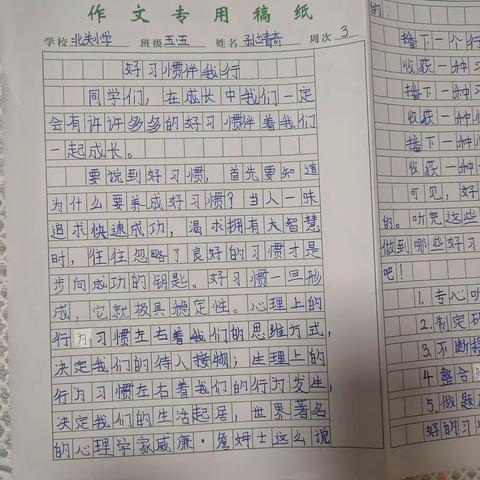 作文专用稿纸
学校 北关小学 班级 五五 姓名 周次 3
好习惯伴我行
同学们，在成长中我们一定
会有许许多多的好习惯伴着我们
一起成长。
要说到好习惯，首先要知道
为什么要养成好习惯？当人一味
追求快速成功，渴求拥有大智慧
时，往往忽略了良好的习惯才是
步向成功的钥匙。好习惯一旦形
成，它就极具稳定性。心理上的
行为习惯左右着我们的思维方式，
决定我们的待人接物；生理上的
行为习惯左右着我们的行为发生，
决定我们的生活起居，世界著名
的心理学家威廉·詹姆士这么说
的：
播下一个行
收获一种习
播下一种习
收获一种
播下一种
收获一种
可见，好
的。听完这些
做到哪些好习
吧！
1.专心听
2.制定
3.不断
4.整合
5.做题
好的习